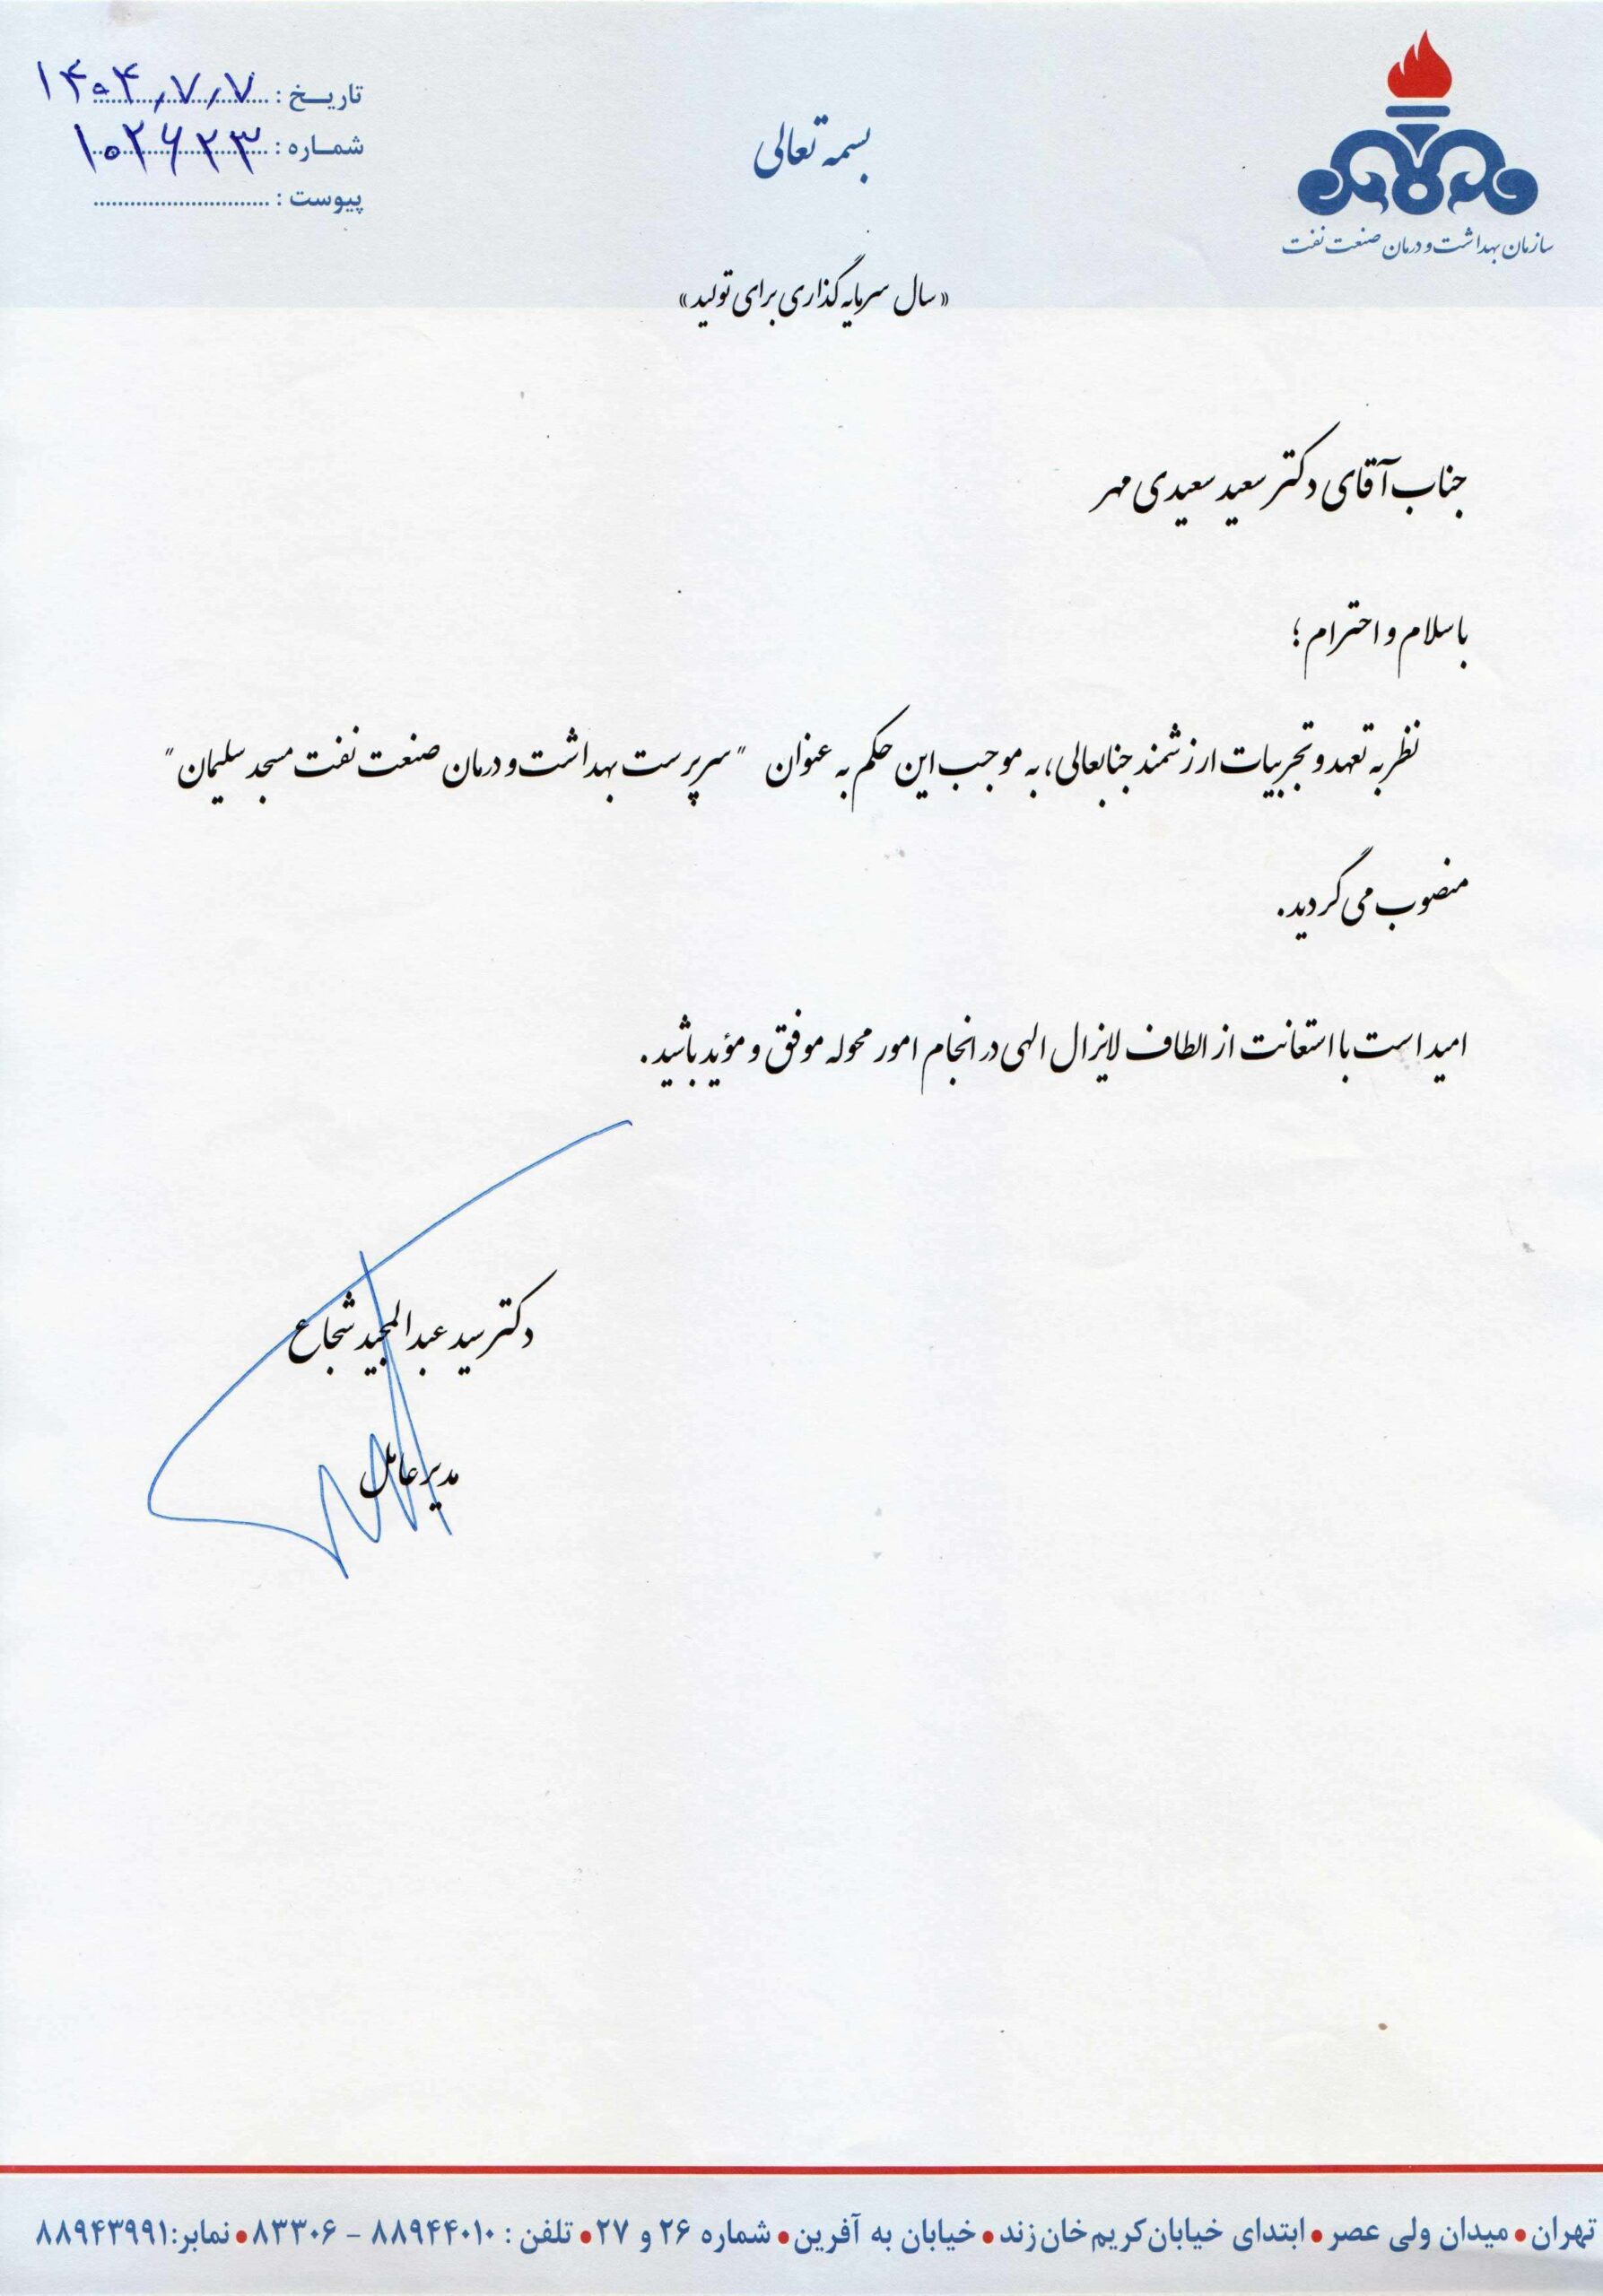 سازمان بهداشت و درمان صنعت نفت
بسمه تعالی
تاریخ : ۱۴۰۴/۷/۷
شماره : ۱۰۲۶۲۳
پیوست : ..............................
«سال سرمایه گذاری برای تولید»
جناب آقای دکتر سعید سعیدی مهر
با سلام و احترام ؛
نظر به تعهد و تجربیات ارزشمند جنابعالی، به موجب این حکم به عنوان "سرپرست بهداشت و درمان صنعت نفت مسجد سلیمان"
منصوب می گردید.
امید است با استعانت از الطاف لایزال الهی در انجام امور محوله موفق و مؤید باشید.
دکتر سید عبدالمجید شجاع
مدیر عامل
تهران • میدان ولی عصر • ابتدای خیابان کریم خان زند • خیابان به آفرین • شماره ۲۶ و ۲۷ • تلفن : ۸۸۹۴۴۰۱۰ – ۸۳۳۰۶ • نمابر:۸۸۹۴۳۹۹۱